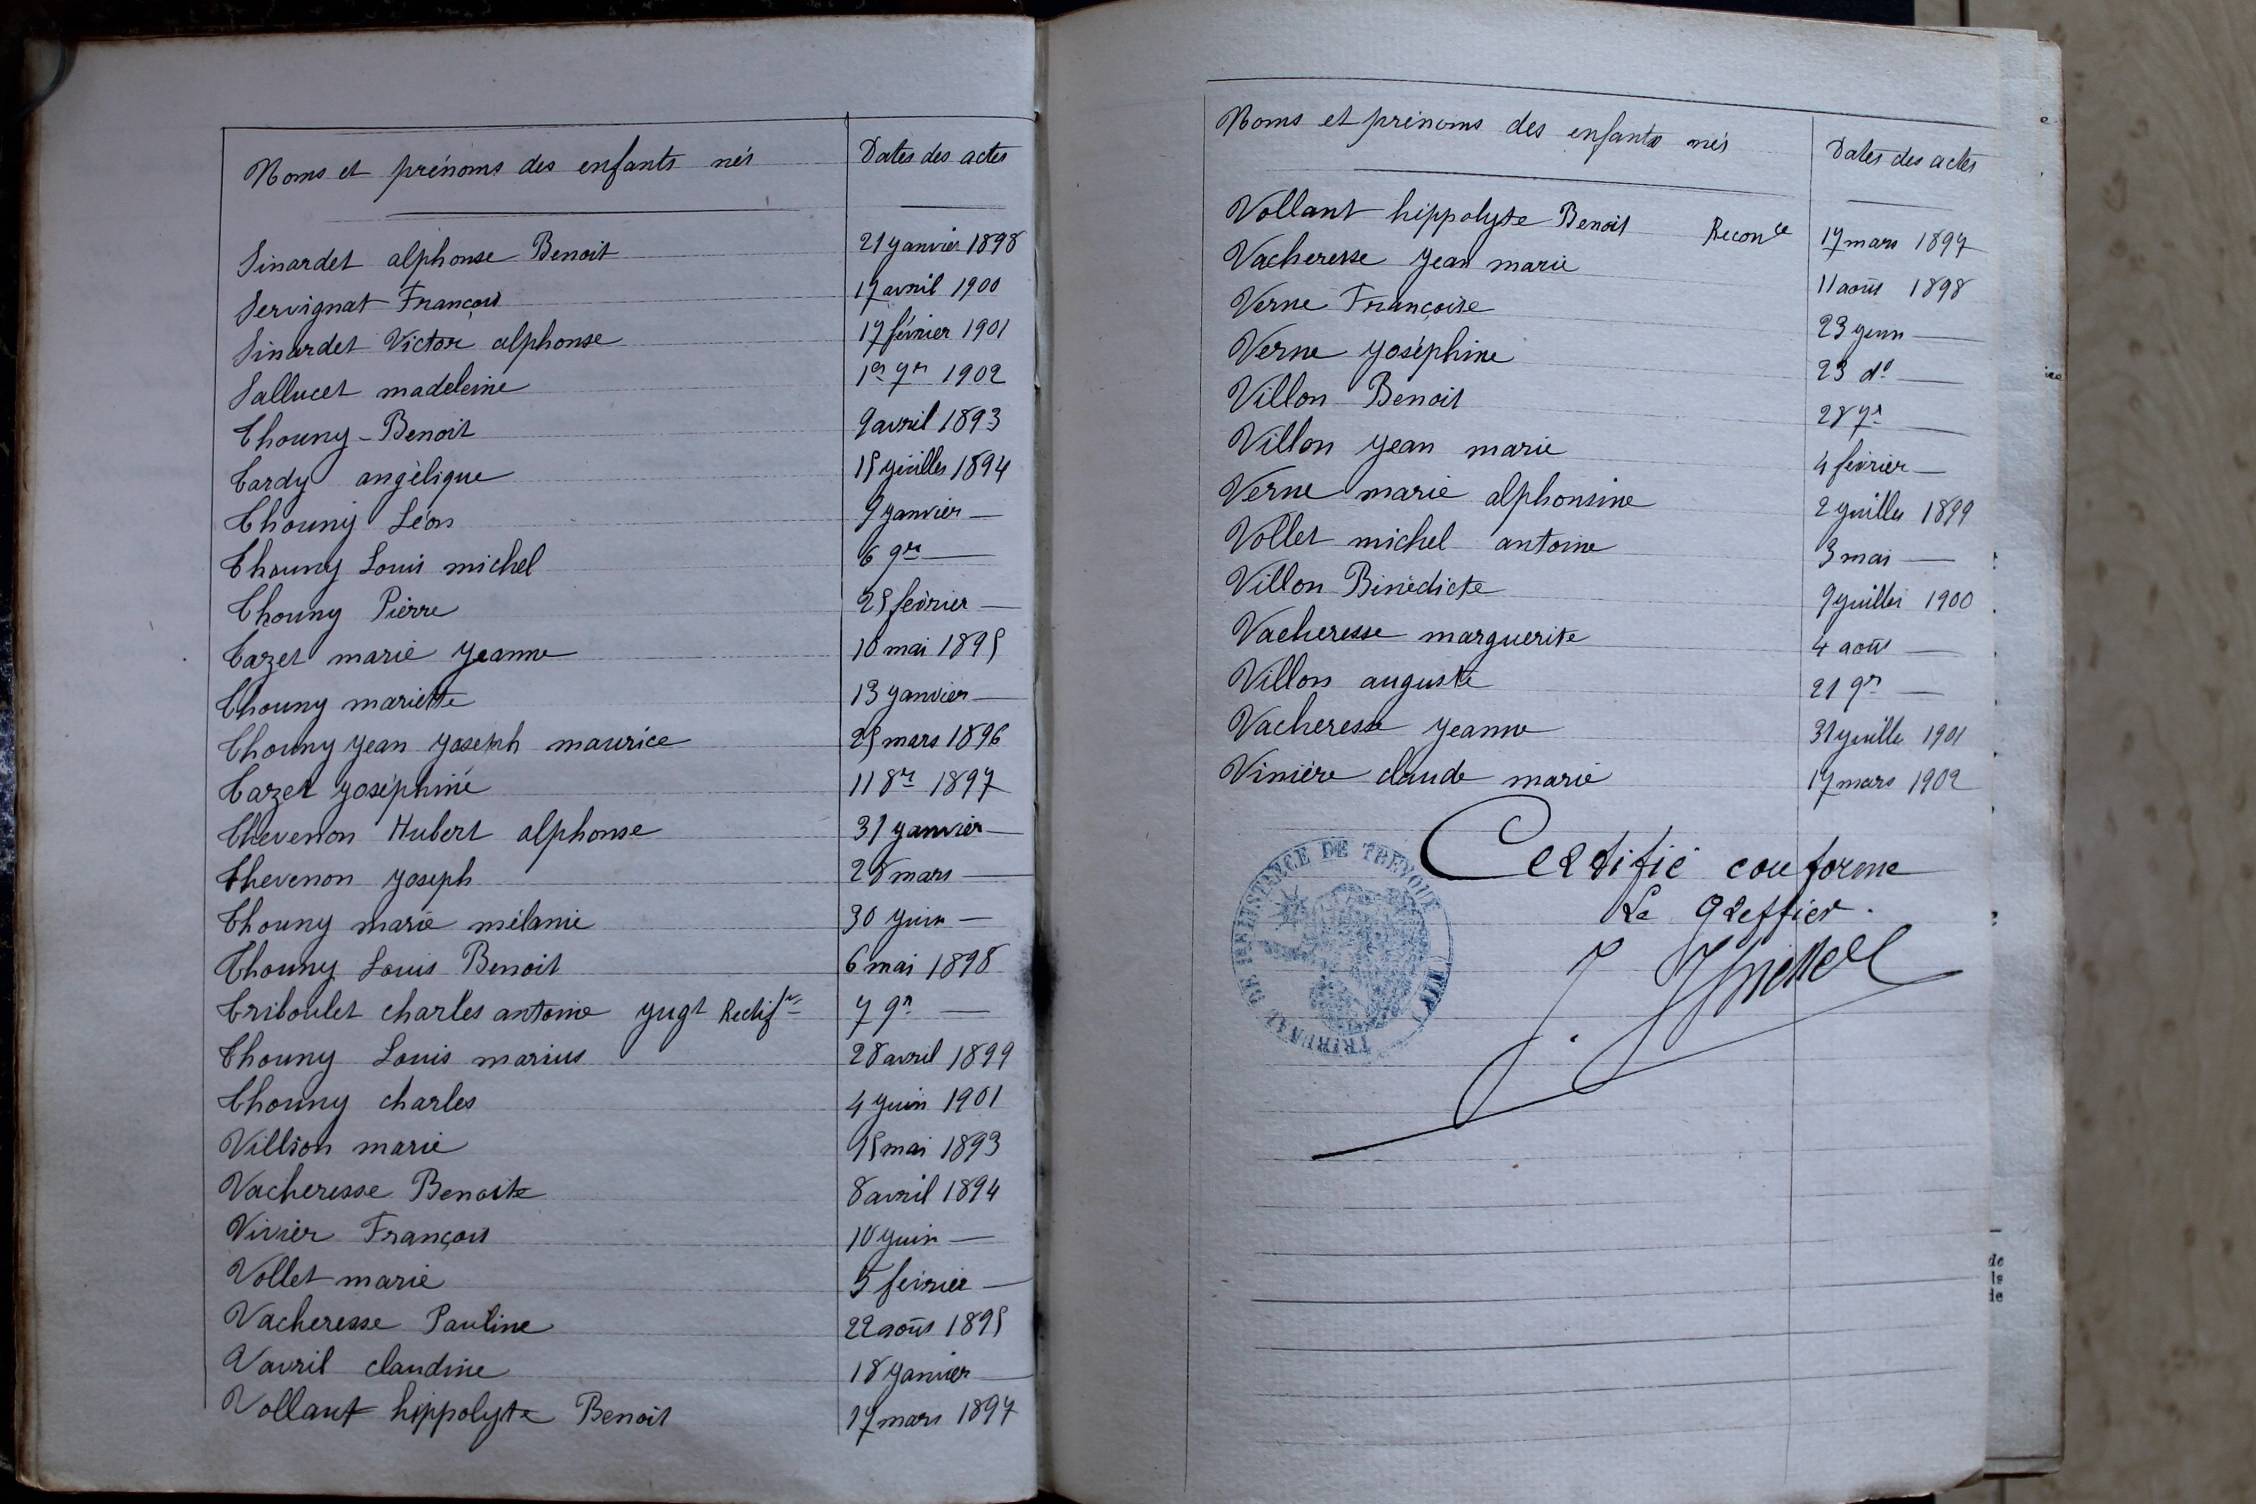 Noms et prénoms des enfants nés Dates des actes
Sinardet alphonse Benoit 21 janvier 1898
Servignat François 17 avril 1900
Sinardet Victor alphonse 17 février 1901
Sallucet madeleine 1er 7re 1902
Thouny-Benoit 9 avril 1893
Tardy angèlique 15 juillet 1894
Thouny Léon 9 janvier —
Thouny Louis michel 6 9re —
Thouny Pierre 25 février —
Tazet marie Jeanne 10 mai 1895
Thouny mariette 13 janvier —
Thouny Jean Joseph maurice 25 mars 1896
Tazet Joséphine 11 8re 1897
Thevenon Hubert alphonse 31 janvier —
Thevenon Joseph 28 mars —
Thouny marie mélanie 30 juin —
Thouny Louis Benoit 6 mai 1898
Triboulet charles antoine jugt Rectif 7 9re —
Thouny Louis marius 28 avril 1899
Thouny charles 4 juin 1901
Villion marie 15 mai 1893
Vacheresse Benoite 8 avril 1894
Vivier François 10 juin —
Vollet marie 5 février —
Vacheresse Pauline 22 août 1895
Vavril claudine 18 janvier —
Vollant hippolyte Benoit 17 mars 1897
Noms et prénoms des enfants nés Dates des actes
Vollant hippolyte Benoit Reconce 17 mars 1897
Vacheresse Jean marie 11 août 1898
Verne Françoise 23 juin —
Verne Joséphine 23 do —
Villon Benoit 28 7re —
Villon Jean marie 4 février —
Verne marie alphonsine 2 juillet 1899
Vollet michel antoine 3 mai —
Villon Bénédicte 9 juillet 1900
Vacheresse marguerite 4 août —
Villon auguste 21 9re —
Vacheresse Jeanne 31 juillet 1901
Vinière claude marie 17 mars 1902
Certifié conforme
Le Greffier.
TRIBUNAL DE 1RE INSTANCE DE TREVOUX (AIN)